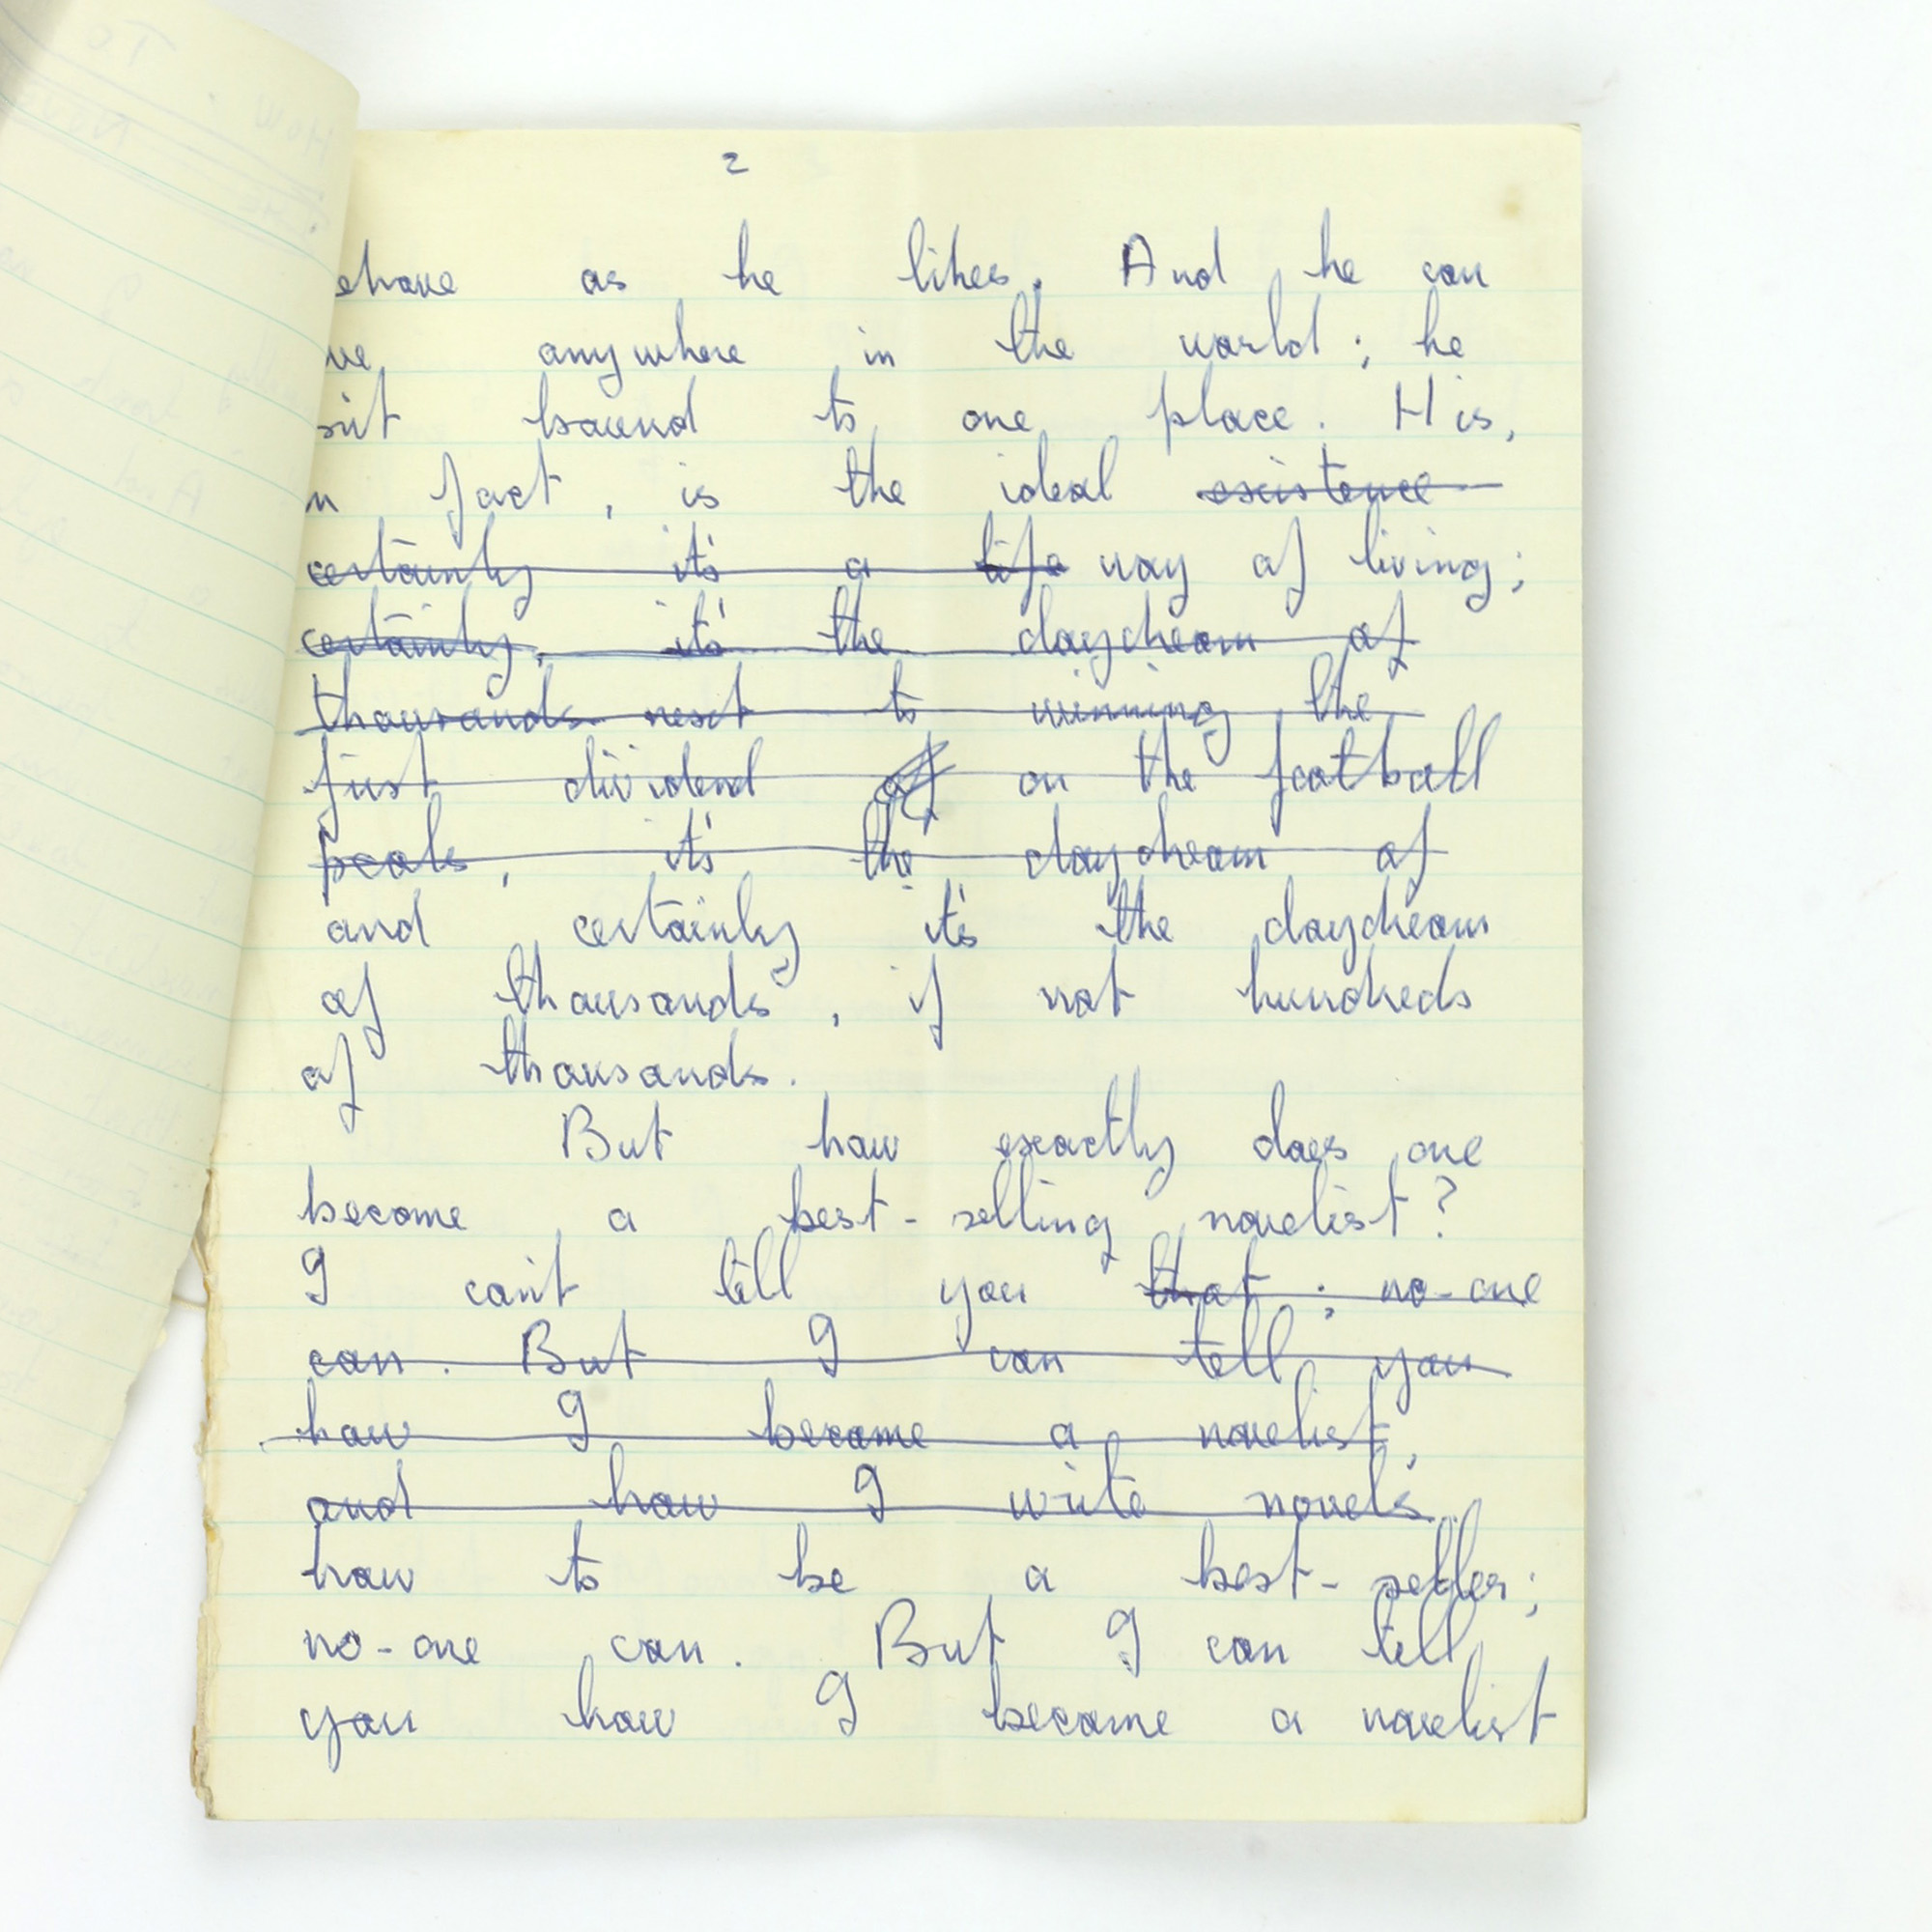 2
ehave as he likes. And he can
ve anywhere in the world; he
sn't bound to one place. His,
n fact, is the ideal existence
certainly it's a life way of living;
certainly, it's the daydream of
thousands next to winning the
first dividend of on the football
pools, it's the daydream of
and certainly it's the daydream
of thousands, if not hundreds
of thousands.
But how exactly does one
become a best-selling novelist?
I can't tell you that; no-one
can. But I can tell you
how I became a novelist,
and how I write novels.
how to be a best-seller;
no-one can. But I can tell
you how I became a novelist